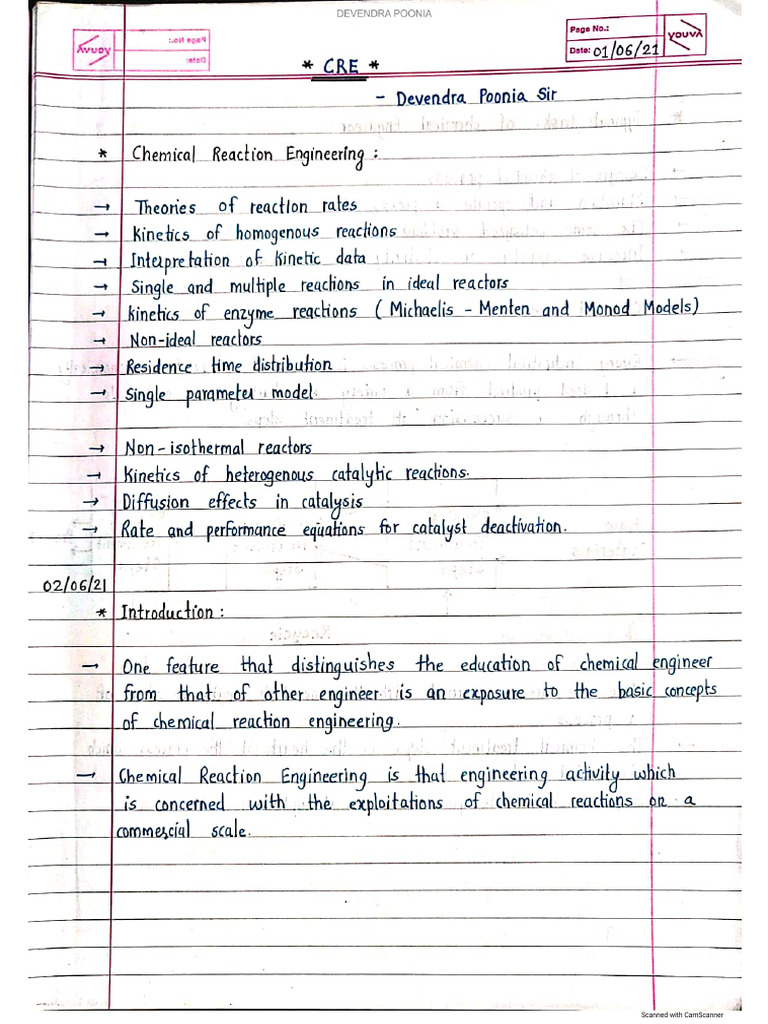 DEVENDRA POONIA
Page No.:
Date: 01/06/21
YOUVA
* CRE *
- Devendra Poonia Sir
* Chemical Reaction Engineering :
→ Theories of reaction rates
→ kinetics of homogenous reactions
→ Interpretation of kinetic data
→ Single and multiple reactions in ideal reactors
→ kinetics of enzyme reactions ( Michaelis - Menten and Monod Models)
→ Non-ideal reactors
→ Residence time distribution
→ Single parameter model
→ Non-isothermal reactors
→ Kinetics of heterogenous catalytic reactions.
→ Diffusion effects in catalysis
→ Rate and performance equations for catalyst deactivation.
02/06/21
* Introduction :
→ One feature that distinguishes the education of chemical engineer
from that of other engineer is an exposure to the basic concepts
of chemical reaction engineering.
→ Chemical Reaction Engineering is that engineering activity which
is concerned with the exploitations of chemical reactions on a
commercial scale.
Scanned with CamScanner